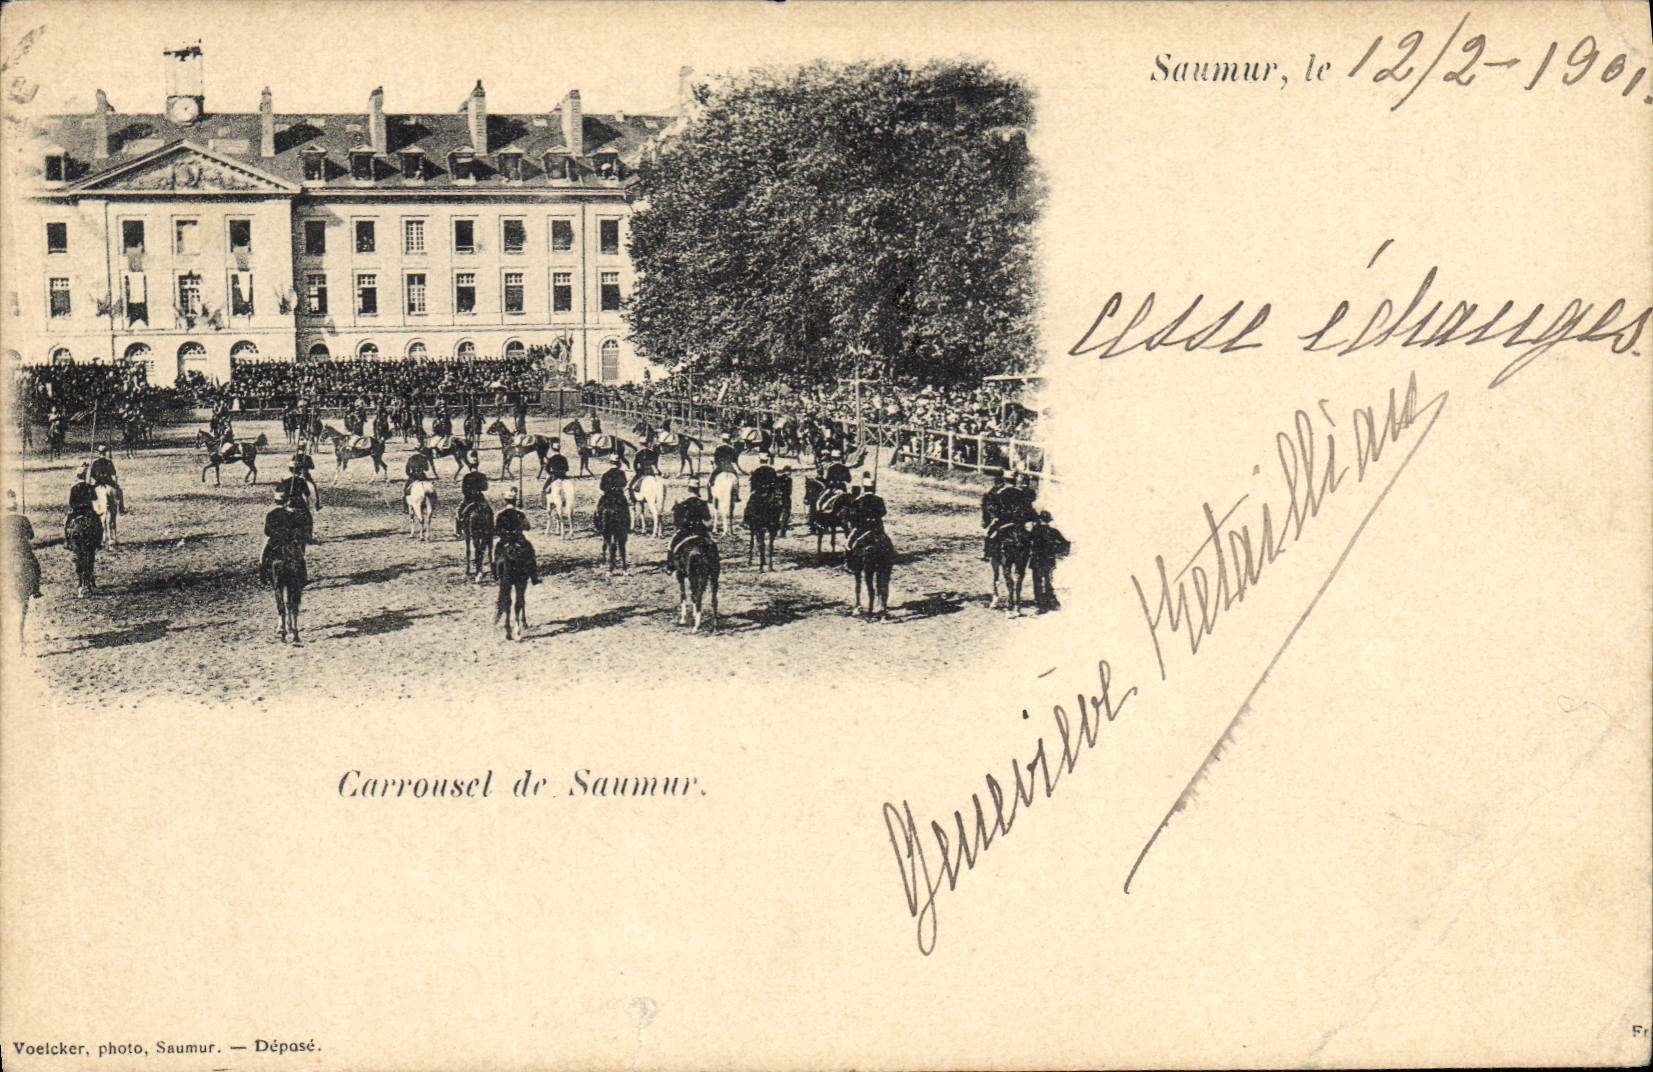 Saumur, le 12/2-1901.
cesse échanges.
Geneviève Métailliau
Carrousel de Saumur.
Voelcker, photo, Saumur. — Déposé.
Fr